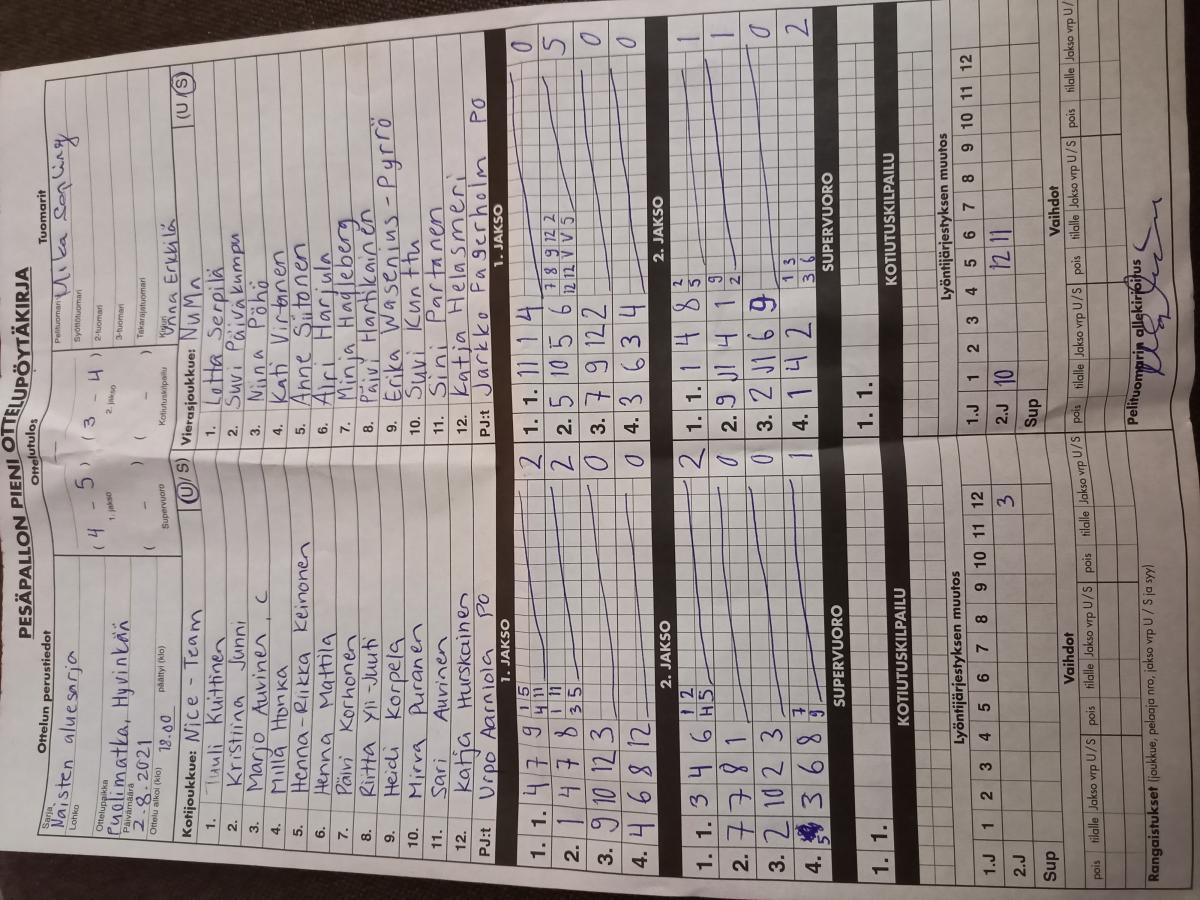 PESÄPALLON PIENI OTTELUPÖYTÄKIRJA
Ottelun perustiedot
Sarja
Naisten aluesarja
Lohko
Ottelupaikka
Puolimatka, Hyvinkään
Päivämäärä
2.8.2021
Ottelu alkoi (klo) 18.00 päättyi (klo)
Ottelutulos
( 4 - 5 ) ( 3 - 4 )
1. jakso 2. jakso
( - ) ( - )
Supervuoro Kotiutuskilpailu
Tuomarit
Pelituomari Mika Sapling
Syöttötuomari
2-tuomari
3-tuomari
Takarajatuomari
Kirjuri
Unna Erkkilä
Kotijoukkue: Nice-Team (U/S)
1. Tuuli Kuittinen
2. Kristiina Junni
3. Marjo Auvinen, C
4. Milla Honka
5. Henna-Riikka Keinonen
6. Henna Mattila
7. Päivi Korhonen
8. Riitta Yli-Juuti
9. Heidi Korpela
10. Mirva Puranen
11. Sari Auvinen
12. Katja Hurskainen
PJ:t Urpo Aarniola PO
Vierasjoukkue: NuMa (U/S)
1. Lotta Serpilä
2. Suvi Päiväkumpu
3. Niina Pöhö
4. Kati Virtanen
5. Anne Siitonen
6. Atri Harjula
7. Minja Hagleberg
8. Päivi Hartikainen
9. Erika Wasenius-Pyrrö
10. Suvi Kunttu
11. Sini Partanen
12. Katja Helasmeri
PJ:t Jarkko Fagerholm PO
1. JAKSO
1. 1. 4 7 9 1 5 2
4 11
2. 1 4 7 8 1 11 2
3 5
3. 9 10 12 3 0
4. 4 6 8 12 0
1. JAKSO
1. 1. 11 1 4 0
2. 5 10 5 6 7 8 9 12 2 5
12 12 V V 5
3. 7 9 12 2 0
4. 3 6 3 4 0
2. JAKSO
1. 1. 3 4 6 1 2 2
4 5
2. 7 7 8 1 0
3. 2 10 2 3 0
4. 5 3 6 8 7 1
9
2. JAKSO
1. 1. 1 4 8 2 1
5
2. 9 11 4 1 9 1
2
3. 2 11 6 9 0
4. 1 4 2 1 3 2
3 6
SUPERVUORO
1. 1.
SUPERVUORO
1. 1.
KOTIUTUSKILPAILU
KOTIUTUSKILPAILU
Lyöntijärjestyksen muutos
1.J 1 2 3 4 5 6 7 8 9 10 11 12
2.J 3
Sup
Lyöntijärjestyksen muutos
1.J 1 2 3 4 5 6 7 8 9 10 11 12
2.J 10 12 11
Sup
Vaihdot
pois tilalle Jakso vrp U/S pois tilalle Jakso vrp U/S pois tilalle Jakso vrp U/S
Vaihdot
pois tilalle Jakso vrp U/S pois tilalle Jakso vrp U/S pois tilalle Jakso vrp U/
Rangaistukset (joukkue, pelaaja nro, jakso vrp U / S ja syy)
Pelituomarin allekirjoitus